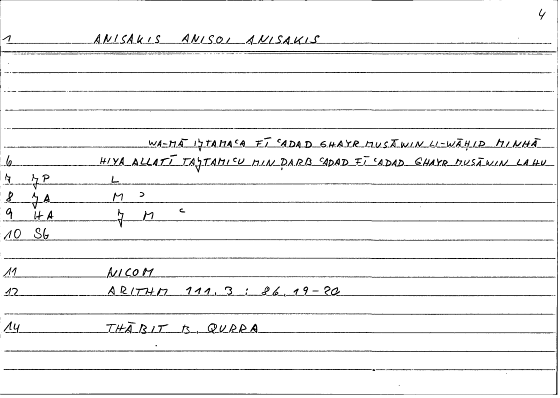 4
1 ANISAKIS ANISOI ANISAKIS
WA-MĀ IJTAMAʿA FĪ ʿADAD GHAYR MUSĀWIN LI-WĀḤID MINHĀ
6 HIYA ALLATĪ TAJTAMIʿU MIN ḌARB ʿADAD FĪ ʿADAD GHAYR MUSĀWIN LAHU
7 JP L
8 JA M ʾ
9 HA J M ʿ
10 SG
11 NICOM
12 ARITHM 111. 3 : 86. 19-20
14 THĀBIT B. QURRA